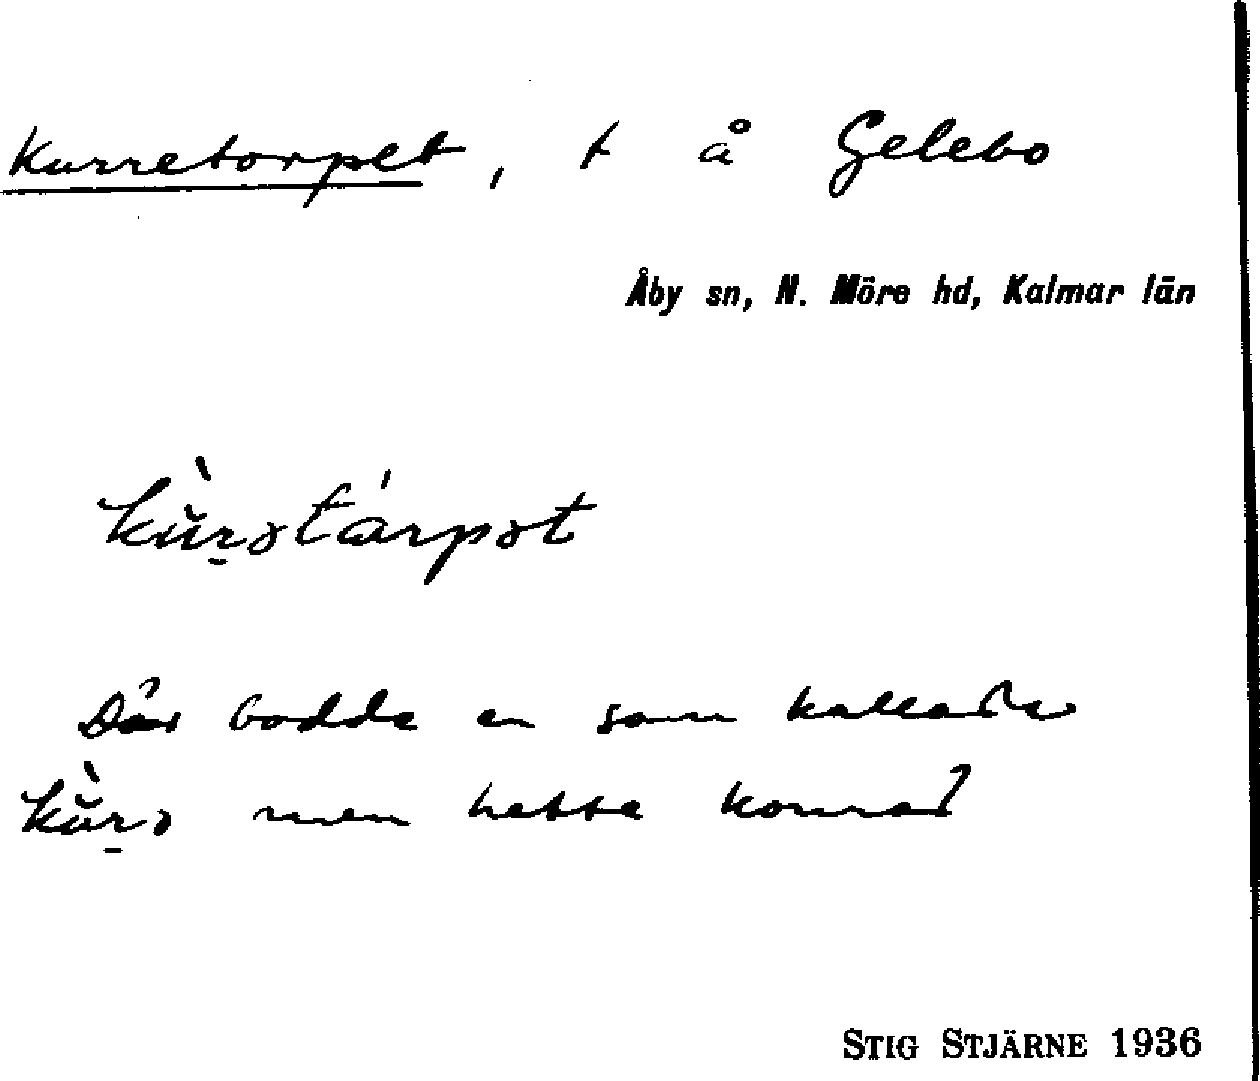 Kurretorpet, t å Gelebo
Åby sn, N. Möre hd, Kalmar län
kùrətárpət
Där bodde en som kallades
kùrə men hette Konrad
STIG STJÄRNE 1936